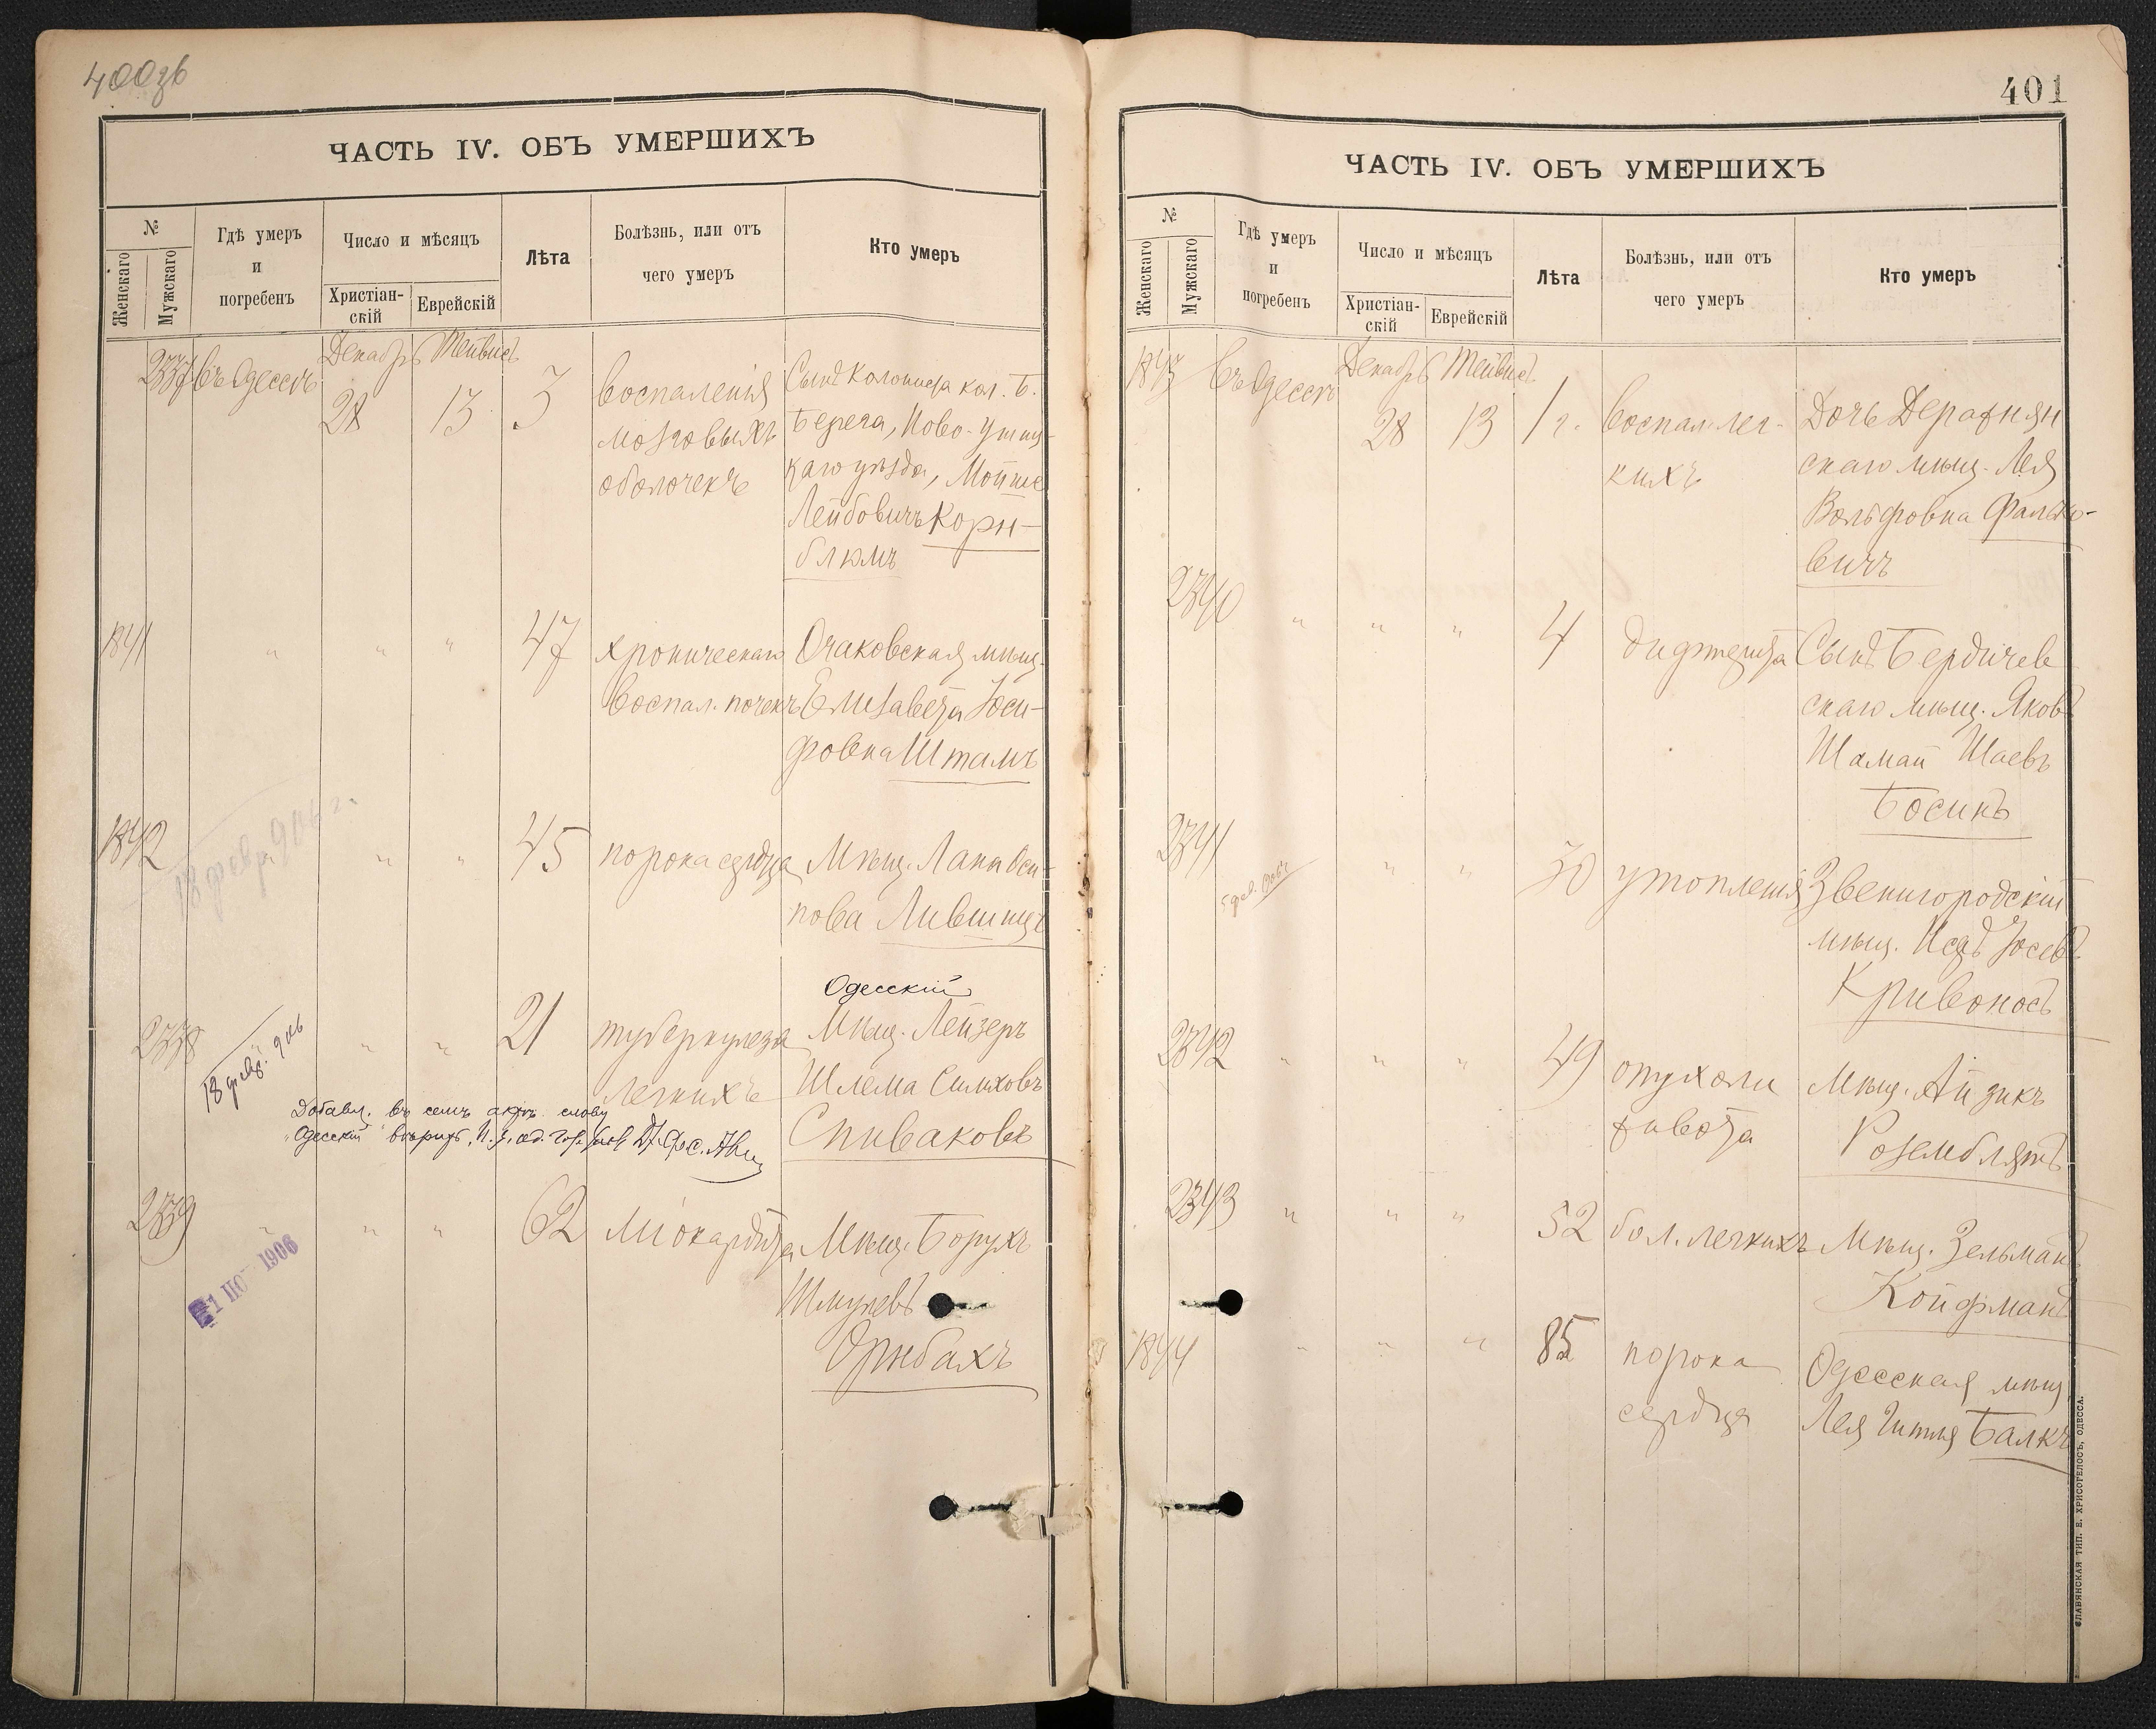 400зв
ЧАСТЬ IV. ОБЪ УМЕРШИХЪ
№
Женскаго
Мужскаго
Гдѣ умеръ
и
погребенъ
Число и мѣсяцъ
Христіан-
скій
Еврейскій
Лѣта
Болѣзнь, или отъ
чего умеръ
Кто умеръ
2337 Въ Одессѣ Декабрь 28 Тейвисъ 13 3
воспаленія
мозговыхъ
оболочекъ
Сынъ колониста кол. Б.
Берега, Ново-Ушиц-
каго уѣзда, Мойше
Лейбовичъ Корн-
блюмъ
1841 " " " 47
хроническаго
воспал. почекъ
Очаковская мѣщ.
Елизавета Іоси-
фовна Штамъ
1842 " " 45
18 февр. 906 г.
порока сердца
Мѣщ. Лана Оси-
пова Лившицъ
2338 " " 21
18 февр. 906
туберкулеза
легкихъ
Одесскій
Мѣщ. Лейзеръ
Шлема Симховъ
Спиваковъ
Добавл. въ семъ актѣ слову
"Одесскій" вѣрить.
2339 " " " 62
1906
міокардита
Мѣщ. Борухъ
Шмулевъ
Орнбахъ
401
ЧАСТЬ IV. ОБЪ УМЕРШИХЪ
№
Женскаго
Мужскаго
Гдѣ умеръ
и
погребенъ
Число и мѣсяцъ
Христіан-
скій
Еврейскій
Лѣта
Болѣзнь, или отъ
чего умеръ
Кто умеръ
1843 Въ Одессѣ Декабрь 28 Тейвисъ 13 1 г.
воспал. лег-
кихъ
Дочь Деражнян
скаго мѣщ. Лея
Вольфовна Фалько-
вичъ
2340 " " " 4
дифтерита
Сынъ Бердичев
скаго мѣщ. Яковъ
Шамай Шаевъ
Босинъ
2341 " " 30
утопленія
Звенигородскій
мѣщ. Исаъ Іосевъ
Кривоносъ
2342 " " " 49
опухоли
живота
Мѣщ. Айзикъ
Розенблятъ
2343 " " " 52
бол. легкихъ
Мѣщ. Зельманъ
Койфманъ
1844 " " " 85
порока
сердца
Одесская мѣщ.
Лея Гитля Балкъ
СЛАВЯНСКАЯ ТИП. Е. ХРИСОГЕЛОСЪ, ОДЕССА.